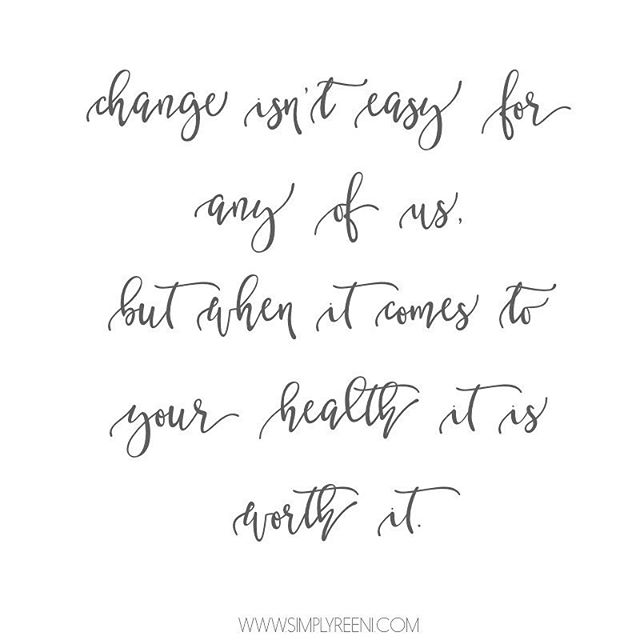 change isn't easy for
any of us,
but when it comes to
your health it is
worth it.
WWW.SIMPLYREENI.COM